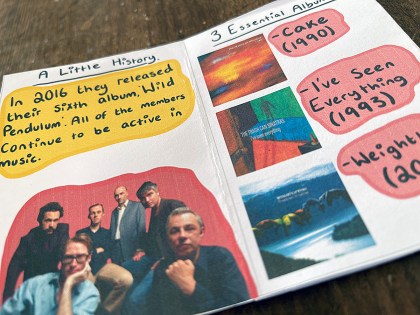 A Little History.
In 2016 they released
their Sixth album, 'Wild
Pendulum'. All of the members
Continue to be active in
music.
3 Essential Album
- Cake
(1990)
- I've Seen
Everything
(1993)
THE TRASH CAN SINATRAS
I've seen everything
- Weightl
(20